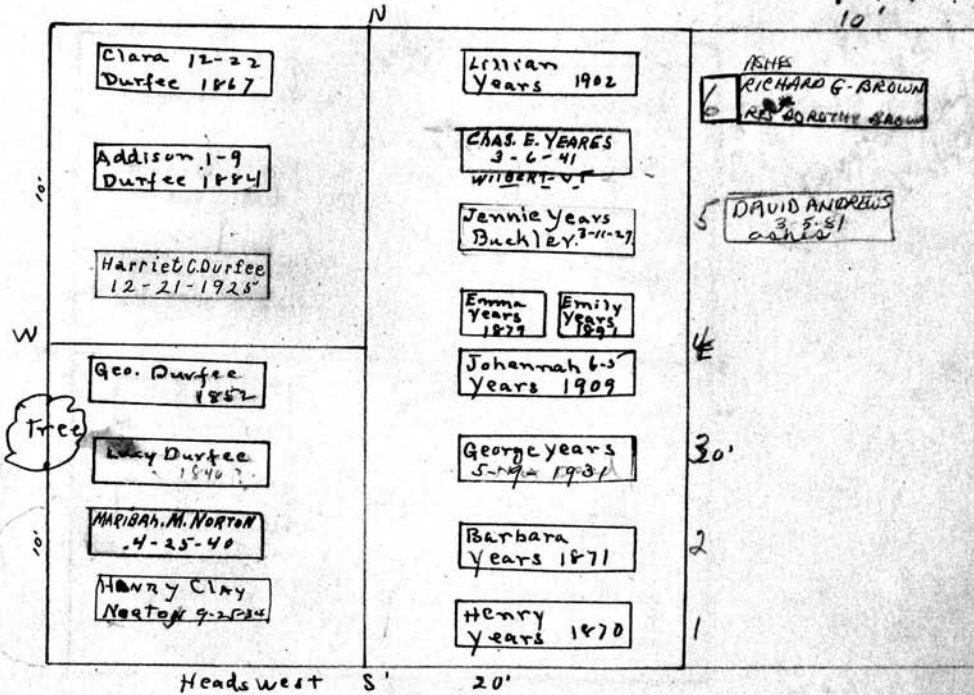 N
10'
Clara 12-22
Durfee 1867
Addison 1-9
Durfee 1884
10'
Harriet C. Durfee
12-21-1925
W
Geo. Durfee
1852
Tree
Lucy Durfee
1840 ?
MARIBAH. M. NORTON
4-25-40
10'
HENRY CLAY
Norton 9-25-34
Lillian
Years 1902
CHAS. E. YEARES
3-6-41
WILBERT-VT
Jennie Years
Buckler. 3-11-27
Emma
Years
1879
Emily
Years
1891
Johannah 6-5
Years 1909
George Years
5-19-1931
Barbara
Years 1871
Henry
Years 1870
ASHES
6
RICHARD G. BROWN
RES DOROTHY BROWN
5
DAVID ANDREWS
3-5-81
ashes
4
3
20'
2
1
Heads west S' 20'